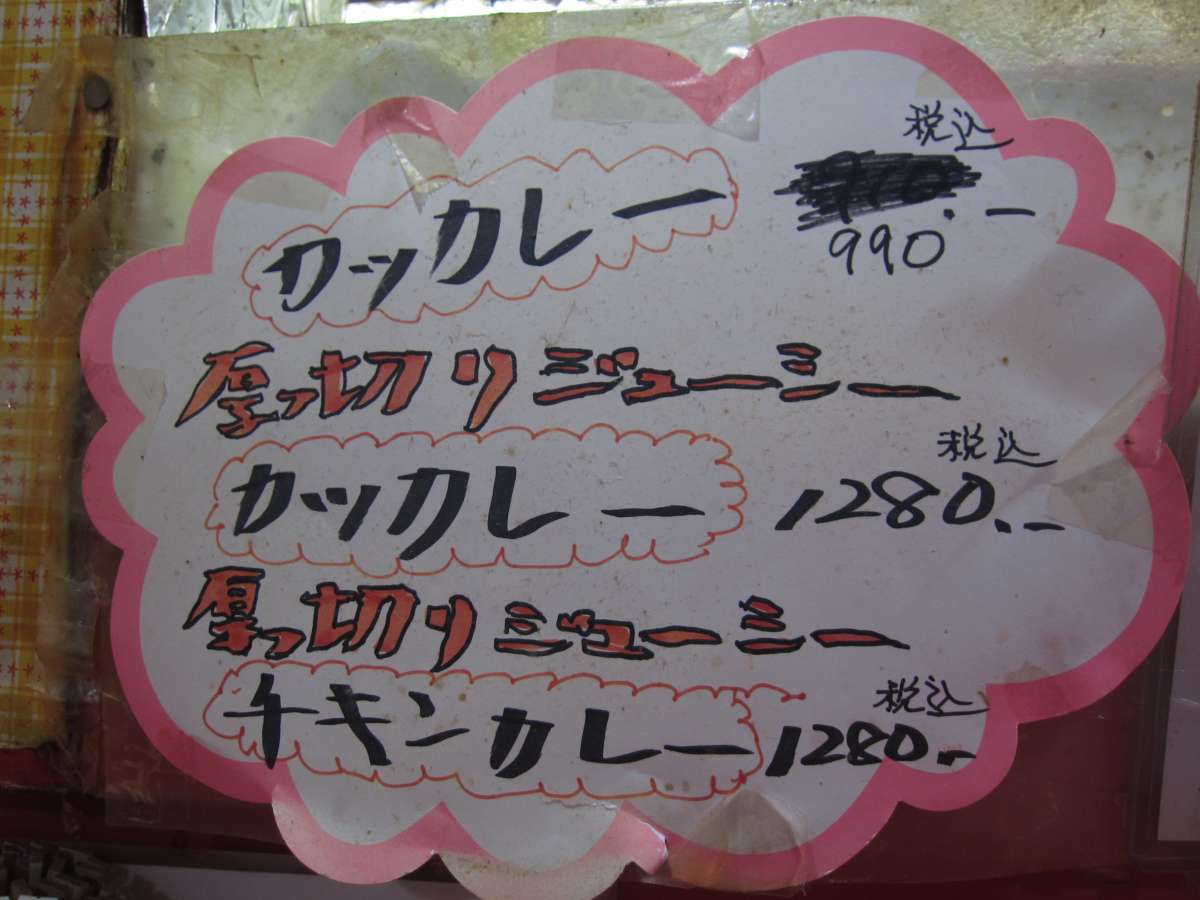 税込
カツカレー .ー
990
厚っ切リジューシー
税込
カツカレー 1280.ー
厚っ切リジューシー
税込
チキンカレー 1280.ー